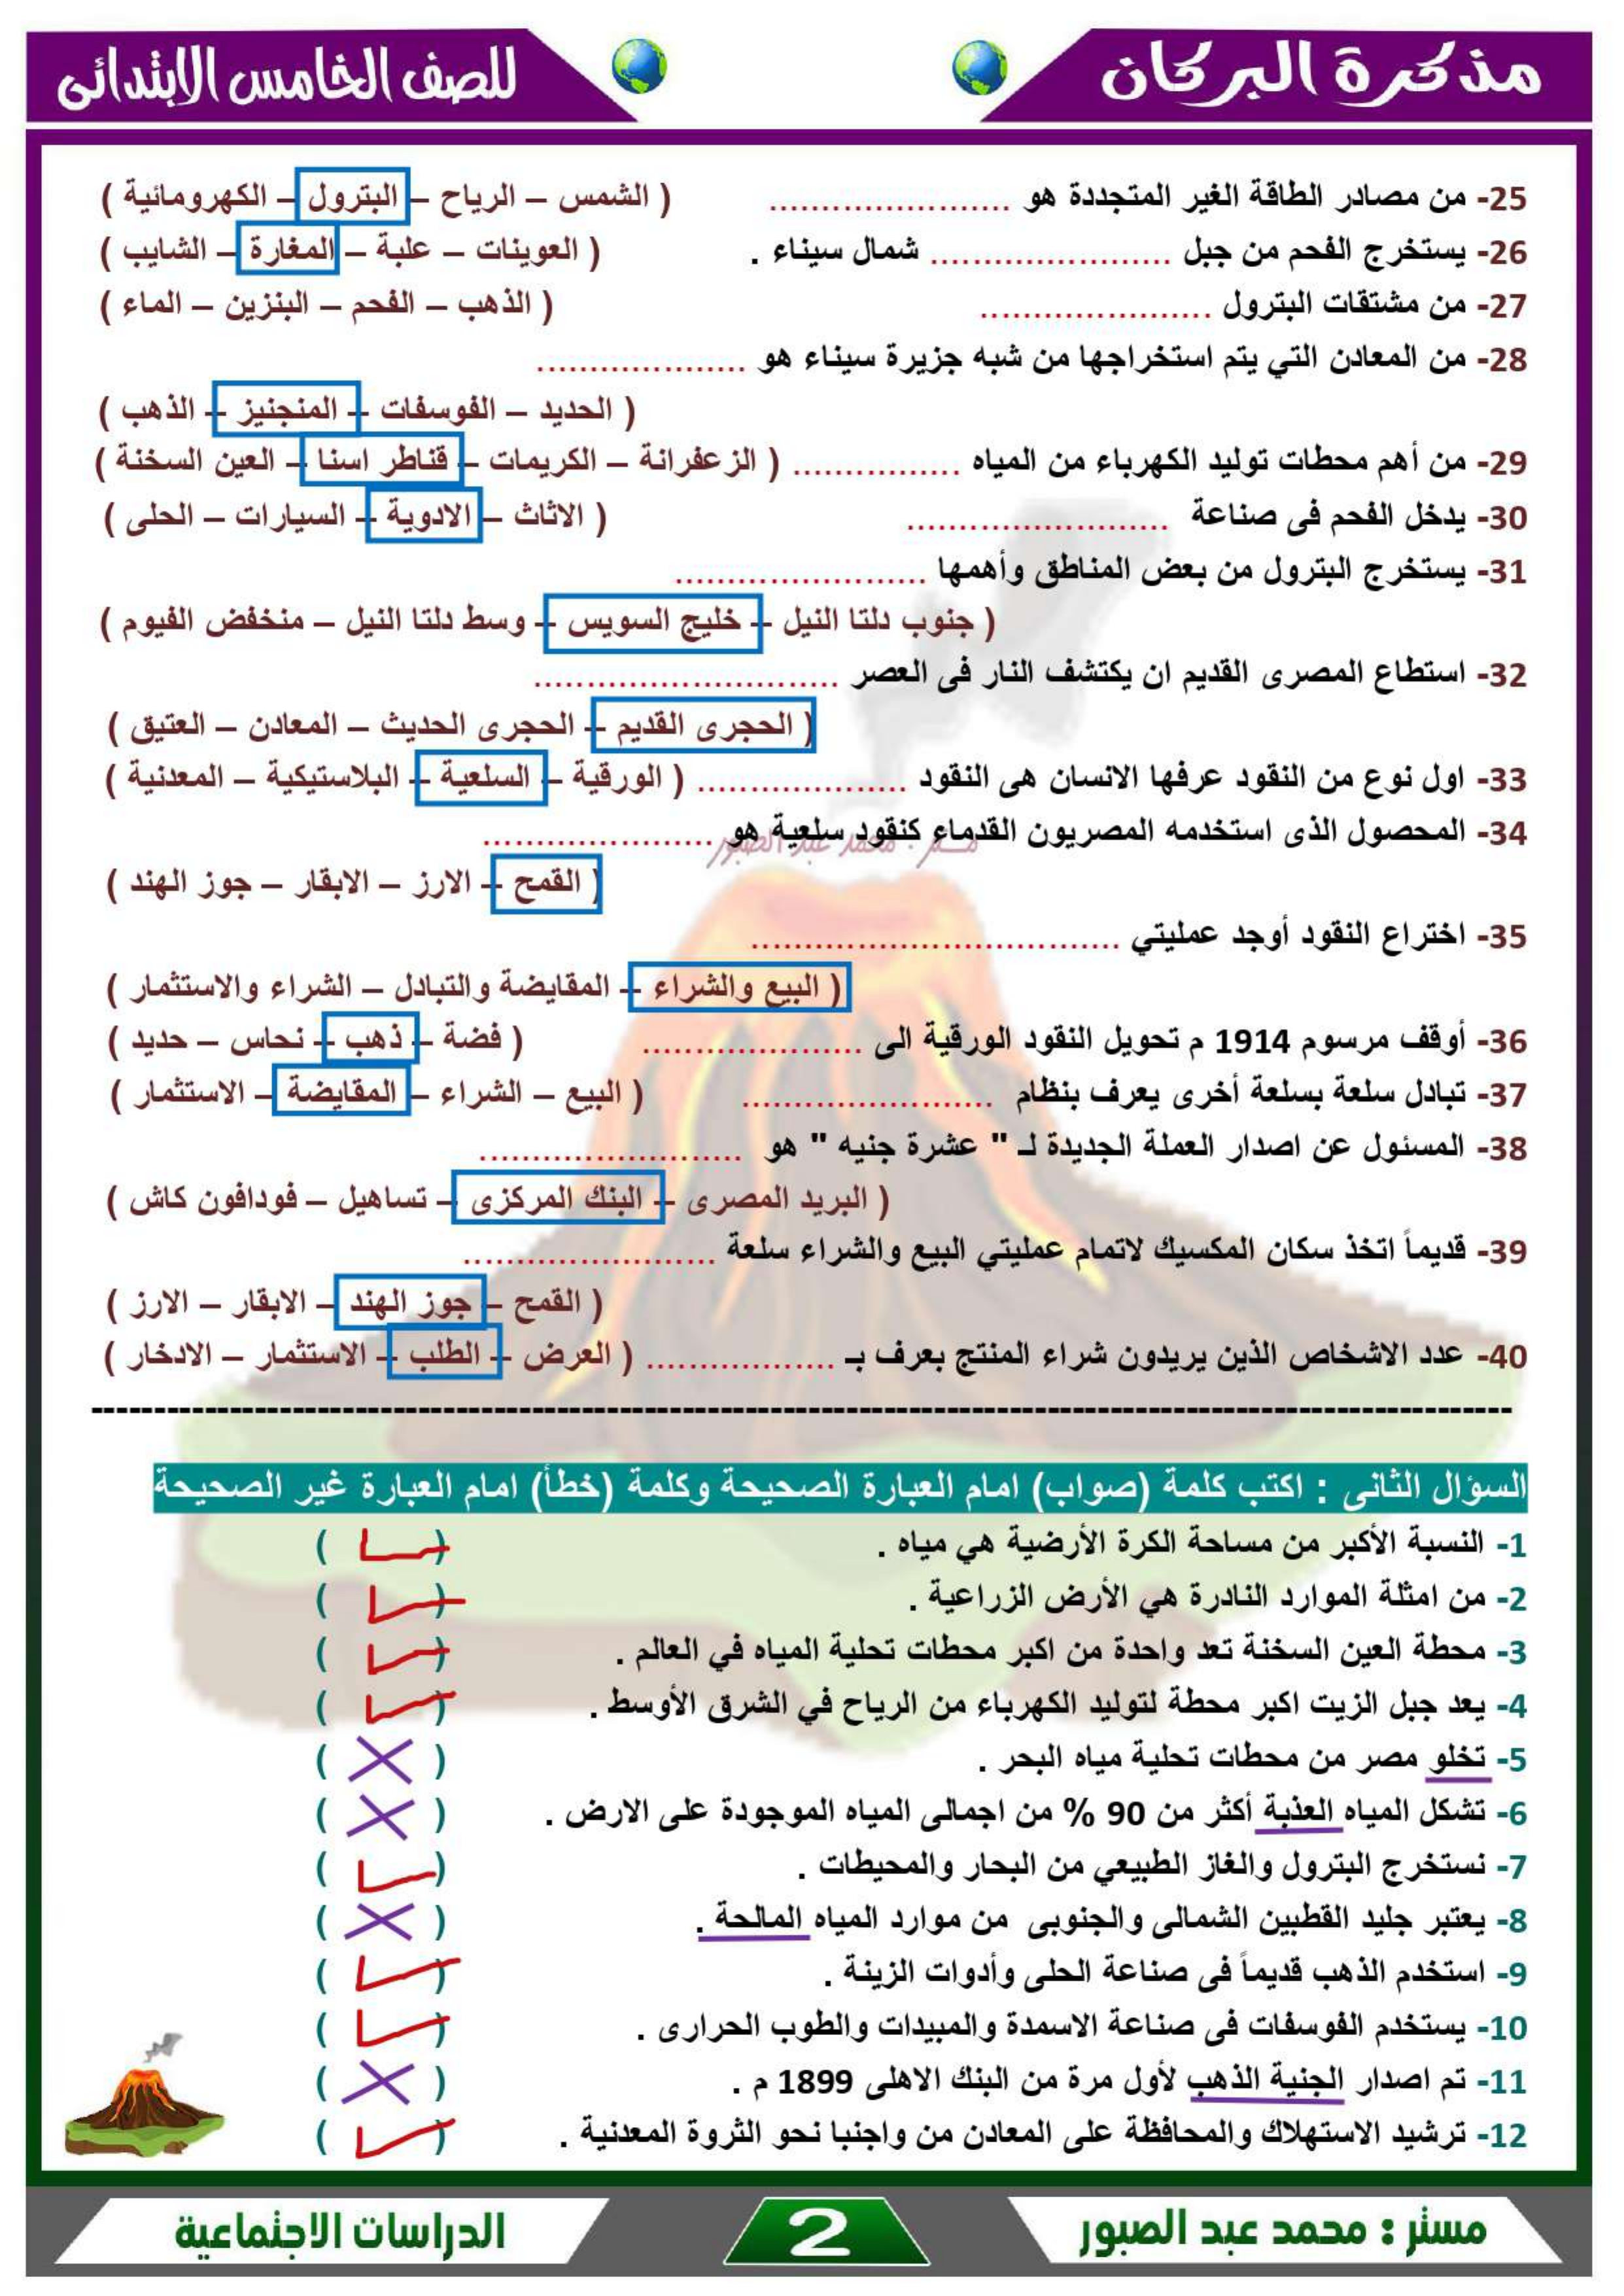 مذكرة البركان
للصف الخامس الابتدائى
25- من مصادر الطاقة الغير المتجددة هو ........................ ( الشمس – الرياح – البترول – الكهرومائية )
26- يستخرج الفحم من جبل ........................ شمال سيناء . ( العوينات – علبة – المغارة – الشايب )
27- من مشتقات البترول ........................ ( الذهب – الفحم – البنزين – الماء )
28- من المعادن التي يتم استخراجها من شبه جزيرة سيناء هو .....................
( الحديد – الفوسفات – المنجنيز – الذهب )
29- من أهم محطات توليد الكهرباء من المياه ................. ( الزعفرانة – الكريمات – قناطر اسنا – العين السخنة )
30- يدخل الفحم فى صناعة .......................... ( الاثاث – الادوية – السيارات – الحلى )
31- يستخرج البترول من بعض المناطق وأهمها .........................
( جنوب دلتا النيل – خليج السويس – وسط دلتا النيل – منخفض الفيوم )
32- استطاع المصرى القديم ان يكتشف النار فى العصر ..............................
( الحجرى القديم – الحجرى الحديث – المعادن – العتيق )
33- اول نوع من النقود عرفها الانسان هى النقود ..................... ( الورقية – السلعية – البلاستيكية – المعدنية )
34- المحصول الذى استخدمه المصريون القدماء كنقود سلعية هو .......................
مستر : محمد عبد الصبور
( القمح – الارز – الابقار – جوز الهند )
35- اختراع النقود أوجد عمليتي ....................................
( البيع والشراء – المقايضة والتبادل – الشراء والاستثمار )
36- أوقف مرسوم 1914 م تحويل النقود الورقية الى ...................... ( فضة – ذهب – نحاس – حديد )
37- تبادل سلعة بسلعة أخرى يعرف بنظام ......................... ( البيع – الشراء – المقايضة – الاستثمار )
38- المسئول عن اصدار العملة الجديدة لـ " عشرة جنيه " هو ..........................
( البريد المصرى – البنك المركزى – تساهيل – فودافون كاش )
39- قديماً اتخذ سكان المكسيك لاتمام عمليتي البيع والشراء سلعة .........................
( القمح – جوز الهند – الابقار – الارز )
40- عدد الاشخاص الذين يريدون شراء المنتج بعرف بـ ................... ( العرض – الطلب – الاستثمار – الادخار )
السؤال الثانى : اكتب كلمة (صواب) امام العبارة الصحيحة وكلمة (خطأ) امام العبارة غير الصحيحة
1- النسبة الأكبر من مساحة الكرة الأرضية هي مياه . ( ✓ )
2- من امثلة الموارد النادرة هي الأرض الزراعية . ( ✓ )
3- محطة العين السخنة تعد واحدة من اكبر محطات تحلية المياه في العالم . ( ✓ )
4- يعد جبل الزيت اكبر محطة لتوليد الكهرباء من الرياح في الشرق الأوسط . ( ✓ )
5- تخلو مصر من محطات تحلية مياه البحر . ( ✗ )
6- تشكل المياه العذبة أكثر من 90 % من اجمالى المياه الموجودة على الارض . ( ✗ )
7- نستخرج البترول والغاز الطبيعي من البحار والمحيطات . ( ✓ )
8- يعتبر جليد القطبين الشمالى والجنوبى من موارد المياه المالحة . ( ✗ )
9- استخدم الذهب قديماً فى صناعة الحلى وأدوات الزينة . ( ✓ )
10- يستخدم الفوسفات فى صناعة الاسمدة والمبيدات والطوب الحرارى . ( ✓ )
11- تم اصدار الجنية الذهب لأول مرة من البنك الاهلى 1899 م . ( ✗ )
12- ترشيد الاستهلاك والمحافظة على المعادن من واجنبا نحو الثروة المعدنية . ( ✓ )
مستر : محمد عبد الصبور
2
الدراسات الاجتماعية